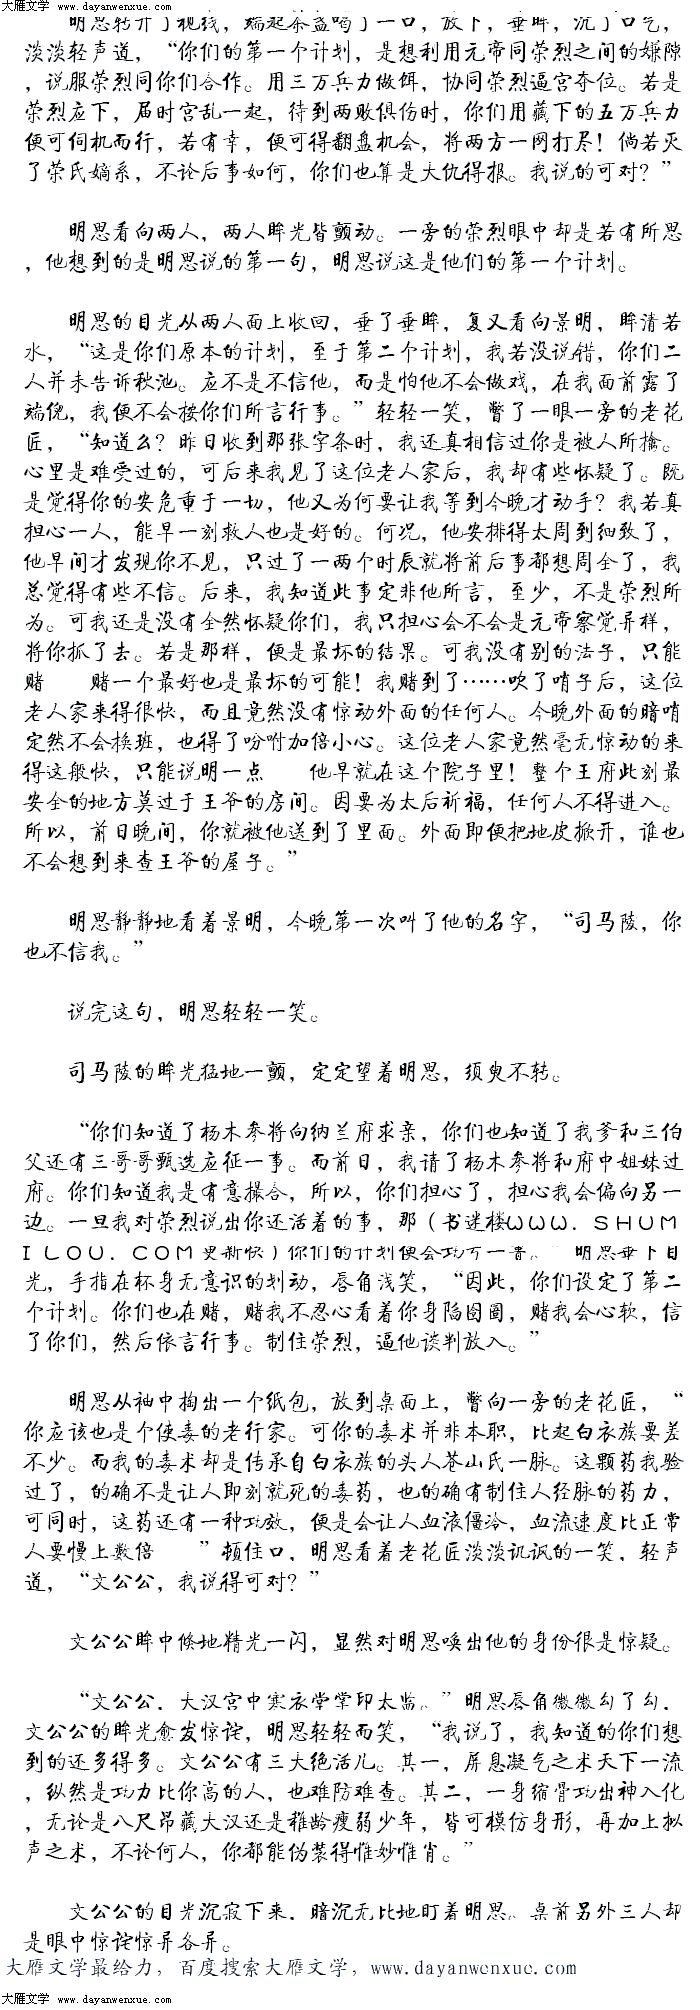 大雁文学 www.dayanwenxue.com
大雁文学 www.dayanwenxue.com
明思转开了视线，端起茶盏喝了一口，放下，垂眸，沉了口气，
淡淡轻声道，“你们的第一个计划，是想利用元帝同荣烈之间的嫌隙
，说服荣烈同你们合作。用三万兵力做饵，协同荣烈逼宫夺位。若是
荣烈应下，届时宫乱一起，待到两败俱伤时，你们用藏下的五万兵力
便可伺机而行，若有幸，便可得翻盘机会，将两方一网打尽！倘若灭
了荣氏嫡系，不论后事如何，你们也算是大仇得报。我说的可对？”
明思看向两人，两人眸光皆颤动。一旁的荣烈眼中却是若有所思
，他想到的是明思说的第一句，明思说这是他们的第一个计划。
明思的目光从两人面上收回，垂了垂眸，复又看向景明，眸清若
水，“这是你们原本的计划，至于第二个计划，我若没说错，你们二
人并未告诉秋池。应不是不信他，而是怕他不会做戏，在我面前露了
端倪，我便不会按你们所言行事。”轻轻一笑，瞥了一眼一旁的老花
匠，“知道么？昨日收到那张字条时，我还真相信过你是被人所擒。
心里是难受过的，可后来我见了这位老人家后，我却有些怀疑了。既
是觉得你的安危重于一切，他又为何要让我等到今晚才动手？我若真
担心一人，能早一刻救人也是好的。何况，他安排得太周到细致了，
他早间才发现你不见，只过了一两个时辰就将前后事都想周全了，我
总觉得有些不信。后来，我知道此事定非他所言，至少，不是荣烈所
为。可我还是没有全然怀疑你们，我只担心会不会是元帝察觉异样，
将你抓了去。若是那样，便是最坏的结果。可我没有别的法子，只能
赌　　赌一个最好也是最坏的可能！我赌到了……吹了哨子后，这位
老人家来得很快，而且竟然没有惊动外面的任何人。今晚外面的暗哨
定然不会换班，也得了吩咐加倍小心。这位老人家竟然毫无惊动的来
得这般快，只能说明一点　　他早就在这个院子里！整个王府此刻最
安全的地方莫过于王爷的房间。因要为太后祈福，任何人不得进入。
所以，前日晚间，你就被他送到了里面。外面即便把地皮掀开，谁也
不会想到来查王爷的屋子。”
明思静静地看着景明，今晚第一次叫了他的名字，“司马陵，你
也不信我。”
说完这句，明思轻轻一笑。
司马陵的眸光猛地一颤，定定望着明思，须臾不转。
“你们知道了杨木参将向纳兰府求亲，你们也知道了我爹和三伯
父还有三哥哥甄选应征一事。而前日，我请了杨木参将和府中姐妹过
府。你们知道我是有意撮合，所以，你们担心了，担心我会偏向另一
边。一旦我对荣烈说出你还活着的事，那（书迷楼WWW．SHUM
ILOU．COM更新快）你们的计划便会功亏一篑。”明思垂下目
光，手指在杯身无意识的划动，唇角浅笑，“因此，你们设定了第二
个计划。你们也在赌，赌我不忍心看着你身陷囹圄，赌我会心软，信
了你们，然后依言行事。制住荣烈，逼他谈判放人。”
明思从袖中掏出一个纸包，放到桌面上，瞥向一旁的老花匠，“
你应该也是个使毒的老行家。可你的毒术并非本职，比起白衣族要差
不少。而我的毒术却是传承自白衣族的头人苍山氏一脉。这颗药我验
过了，的确不是让人即刻就死的毒药，也的确有制住人经脉的药力，
可同时，这药还有一种功效，便是会让人血液僵冷，血流速度比正常
人要慢上数倍　　”顿住口，明思看着老花匠淡淡讥讽的一笑，轻声
道，“文公公，我说得可对？”
文公公眸中倏地精光一闪，显然对明思唤出他的身份很是惊疑。
“文公公，大汉宫中寒衣堂掌印太监。”明思唇角微微勾了勾，
文公公的眸光愈发惊诧，明思轻轻而笑，“我说了，我知道的你们想
到的还多得多。文公公有三大绝活儿。其一，屏息凝气之术天下一流
，纵然是功力比你高的人，也难防难查。其二，一身缩骨功出神入化
，无论是八尺昂藏大汉还是稚龄瘦弱少年，皆可模仿身形，再加上拟
声之术，不论何人，你都能伪装得惟妙惟肖。”
文公公的目光沉寂下来，暗沉无比地盯着明思。桌前另外三人却
是眼中惊诧惊异各异。
大雁文学最给力，百度搜索大雁文学，www.dayanwenxue.com
大雁文学 www.dayanwenxue.com
大雁文学 www.dayanwenxue.com